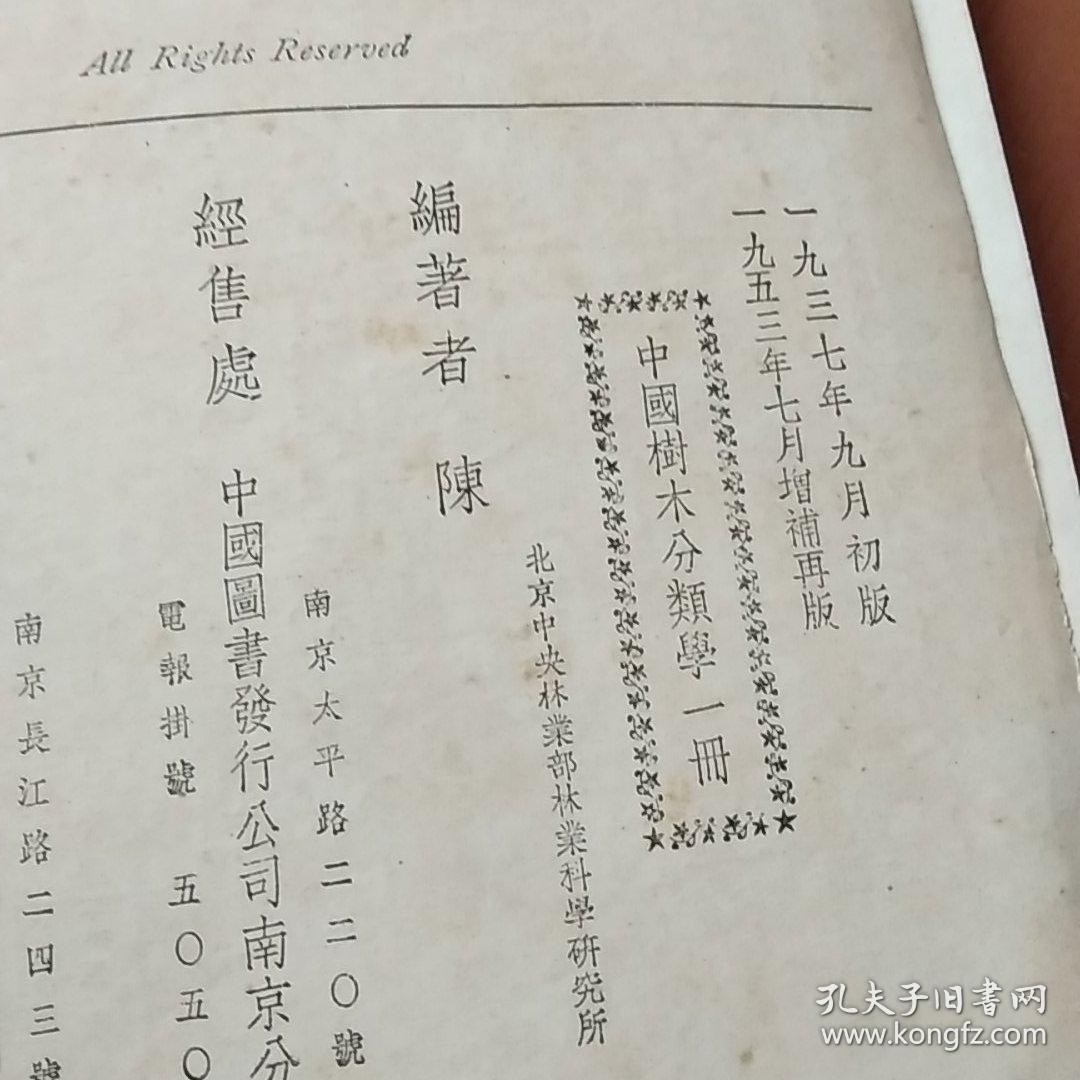 All Rights Reserved
一九三七年九月初版
一九五三年七月增補再版
中國樹木分類學一冊
北京中央林業部林業科學研究所
編著者 陳
南京太平路二二〇號
經售處 中國圖書發行公司南京分
電報掛號 五〇五〇
南京長江路二四三號
孔夫子旧书网
www.kongfz.com